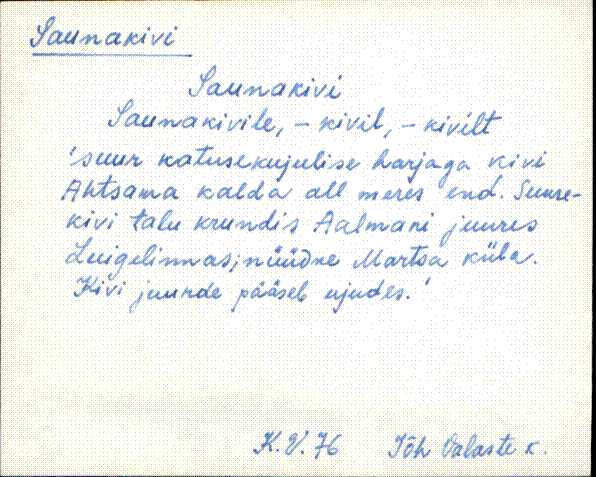 Saunakivi
Saunakivi
Saunakivile, - kivil, - kivilt
'suur katusekujulise harjaga kivi
Ahtsama kalda all meres end. Suure-
kivi talu krundis Aalmani juures
Luigelinnas; nüüdne Martsa küla.
Kivi juurde pääseb ujudes.'
K.V. 76 Jõh Valaste k.